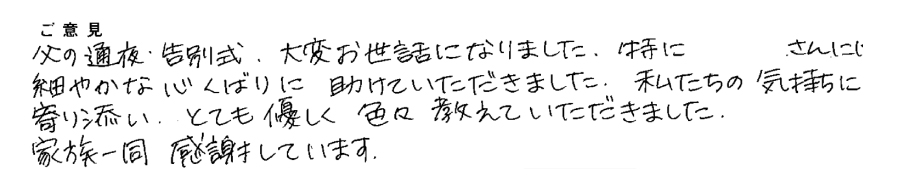 ご意見
父の通夜・告別式、大変お世話になりました。特に　　　さんには
細やかな心くばりに 助けていただきました。私たちの気持ちに
寄り添い、とても優しく 色々 教えていただきました。
家族一同 感謝しています。